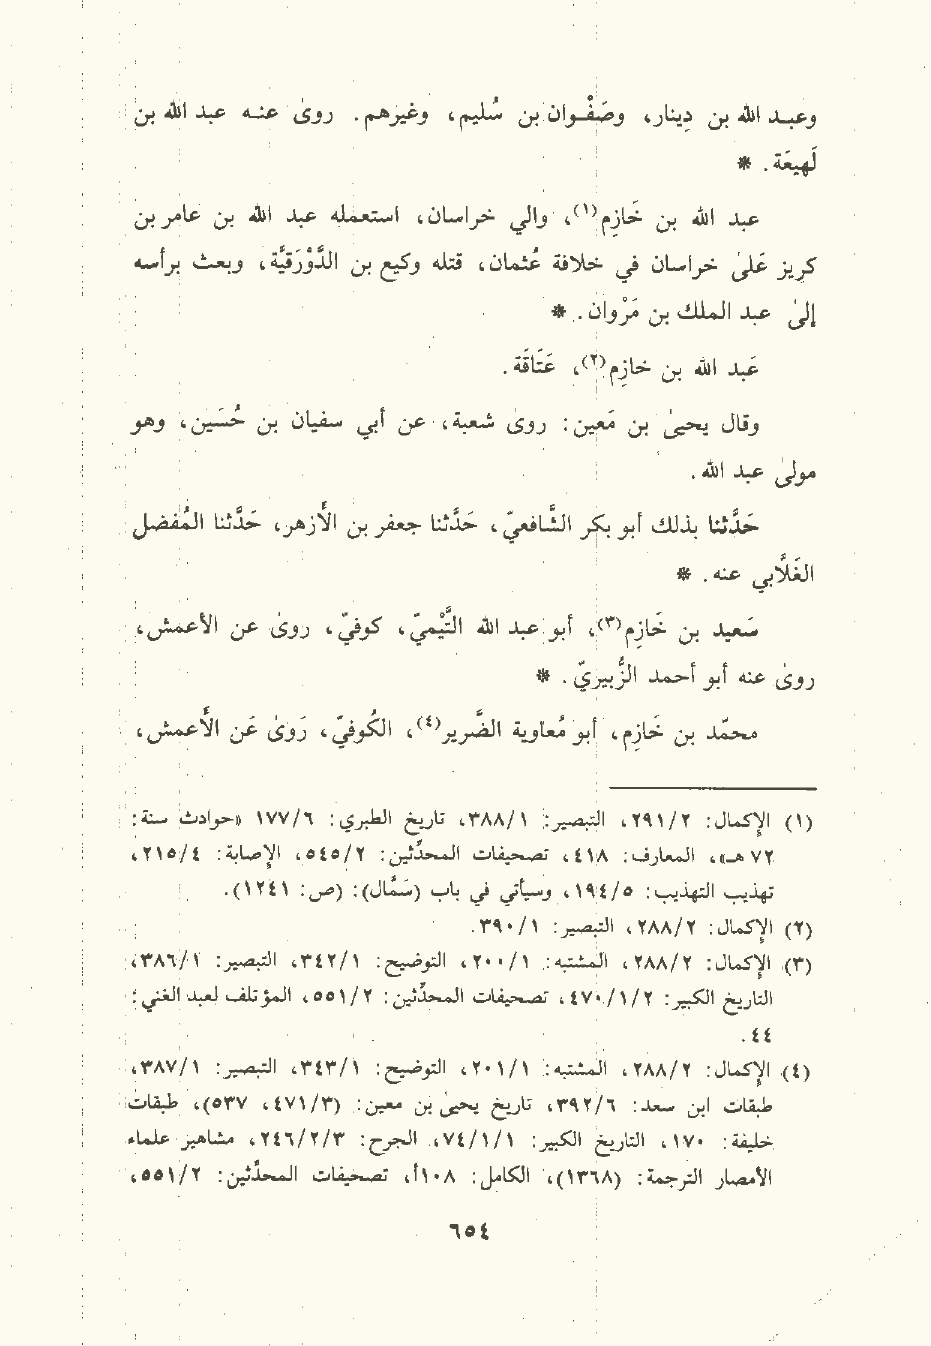 وعبـد الله بن دِينار، وصَفْـوان بن سُليم، وغيرهم. روىٰ عنـه عبد الله بن
لَهِيعَة. *
عبد الله بن خَازِم(١)، والي خراسان، استعمله عبد الله بن عامر بن
كريز عَلىٰ خراسان في خلافة عُثمان، قتله وكيع بن الدَّوْرَقيَّة، وبعث برأسه
إلىٰ عبد الملك بن مَرْوان. *
عَبد الله بن خازِم(٢)، عَتَاقَة.
وقال يحيىٰ بن مَعين: روىٰ شعبة، عن أبي سفيان بن حُسَين، وهو
مولىٰ عبد الله.
حَدَّثنا بذلك أبو بكر الشَّافعيّ، حَدَّثنا جعفر بن الأَزهر، حَدَّثنا المُفضل
الغَلَّابي عنه. *
سَعيد بن خَازِم(٣)، أبو عبد الله التَّيْميّ، كوفيّ، روىٰ عن الأعمش،
روىٰ عنه أبو أحمد الزُّبيريّ. *
محمّد بن خَازِم، أبو مُعاوية الضَّرير(٤)، الكُوفيّ، رَوىٰ عَن الأَعمش،
(١) الإكمال: ٢٩١/٢، التبصير: ٣٨٨/١، تاريخ الطبري: ١٧٧/٦ «حوادث سنة:
٧٢ هـ»، المعارف: ٤١٨، تصحيفات المحدّثين: ٥٤٥/٢، الإصابة: ٢١٥/٤،
تهذيب التهذيب: ١٩٤/٥، وسيأتي في باب (سَمَّال): (ص: ١٢٤١).
(٢) الإكمال: ٢٨٨/٢، التبصير: ٣٩٠/١.
(٣) الإكمال: ٢٨٨/٢، المشتبه: ٢٠٠/١، التوضيح: ٣٤٢/١، التبصير: ٣٨٦/١،
التاريخ الكبير: ٤٧٠/١/٢، تصحيفات المحدّثين: ٥٥١/٢، المؤتلف لعبد الغني:
٤٤.
(٤) الإكمال: ٢٨٨/٢، المشتبه: ٢٠١/١، التوضيح: ٣٤٣/١، التبصير: ٣٨٧/١،
طبقات ابن سعد: ٣٩٢/٦، تاريخ يحيىٰ بن معين: (٤٧١/٣، ٥٣٧)، طبقات
خليفة: ١٧٠، التاريخ الكبير: ٧٤/١/١، الجرح: ٢٤٦/٢/٣، مشاهير علماء
الأمصار الترجمة: (١٣٦٨)، الكامل: ١٠٨أ، تصحيفات المحدِّثين: ٥٥١/٢،
٦٥٤